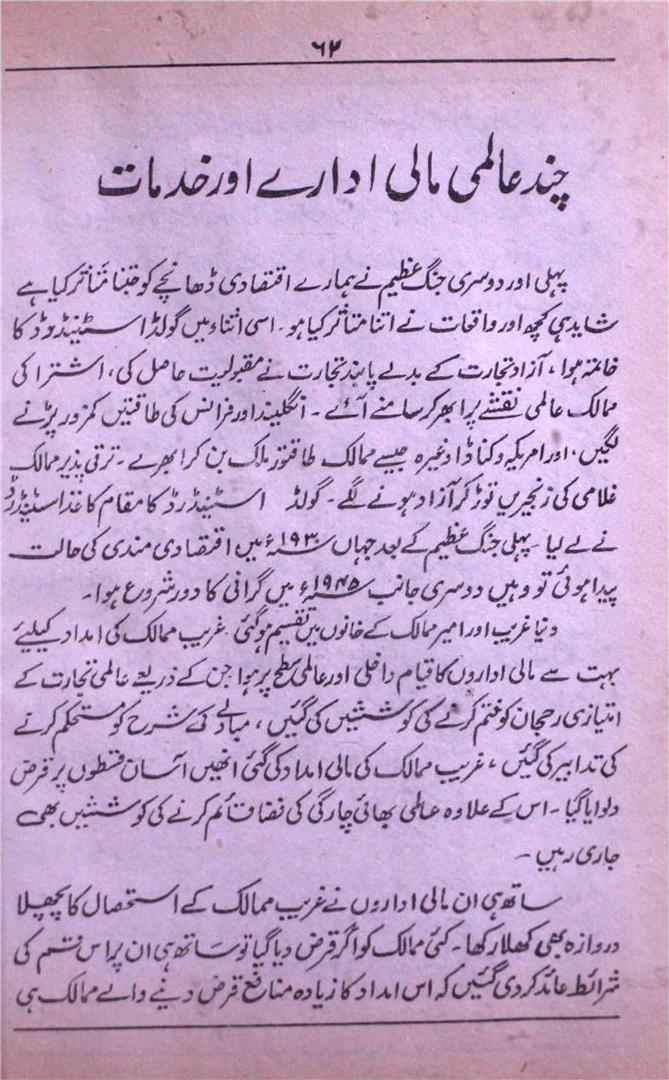 ۶۲
چند عالمی مالی ادارے اور خدمات
پہلی اور دوسری جنگ عظیم نے ہمارے اقتصادی ڈھانچے کو جتنا متاثر کیا ہے
شاید ہی کچھ اور واقعات نے اتنا متاثر کیا ہو۔ اسی اثناء میں گولڈ اسٹینڈوڈ کا
خاتمہ ہوا، آزاد تجارت کے بدلے پابند تجارت نے مقبولیت حاصل کی، اشتراکی
ممالک عالمی نقشے پر ابھر کر سامنے آئے۔ انگلینڈ اور فرانس کی طاقتیں کمزور پڑنے
لگیں، اور امریکہ و کناڈا وغیرہ جیسے ممالک طاقتور بلاک بن کر ابھرے۔ ترقی پذیر ممالک
غلامی کی زنجیریں توڑ کر آزاد ہونے لگے۔ گولڈ اسٹینڈرڈ کا مقام کاغذ اسٹینڈرڈ
نے لے لیا۔ پہلی جنگ عظیم کے بعد جہاں ۱۹۳۰ء میں اقتصادی مندی کی حالت
پیدا ہوئی تو وہیں دوسری جانب ۱۹۴۵ء میں گرانی کا دور شروع ہوا۔
دنیا غریب اور امیر ممالک کے خانوں میں تقسیم ہو گئی۔ غریب ممالک کی امداد کیلئے
بہت سے مالی اداروں کا قیام داخلی اور عالمی سطح پر ہوا جن کے ذریعے عالمی تجارت کے
امتیازی رجحان کو ختم کرنے کی کوششیں کی گئیں، مبادلے کی شرح کو مستحکم کرنے
کی تدابیر کی گئیں، غریب ممالک کی مالی امداد کی گئی انھیں آسان قسطوں پر قرض
دلوایا گیا۔ اس کے علاوہ عالمی بھائی چارگی کی فضا قائم کرنے کی کوششیں بھی
جاری رہیں۔
ساتھ ہی ان مالی اداروں نے غریب ممالک کے استحصال کا پچھلا
دروازہ بھی کھلا رکھا۔ کئی ممالک کو اگر قرض دیا گیا تو ساتھ ہی ان پر اس قسم کی
شرائط عائد کر دی گئیں کہ اس امداد کا زیادہ منافع قرض دینے والے ممالک ہی